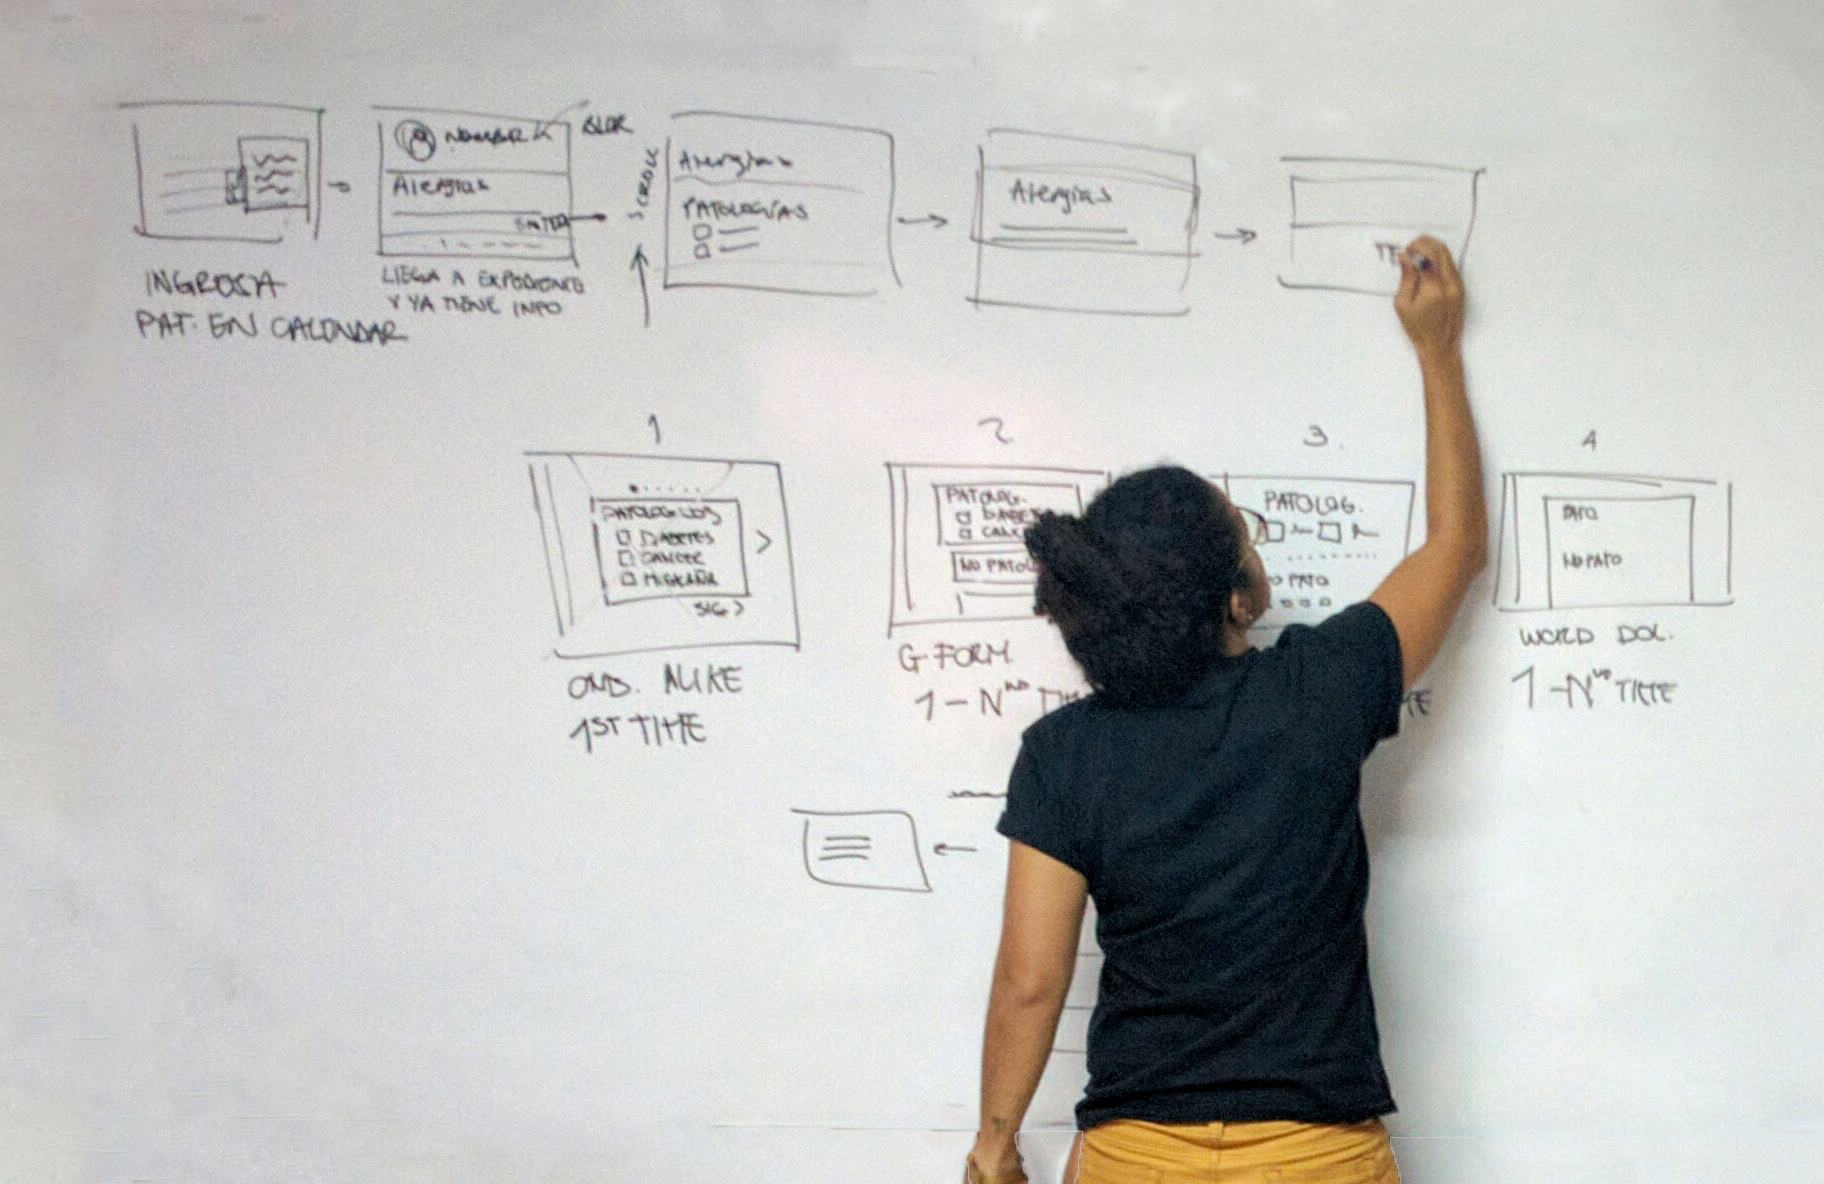 NOMBRE
Alergias
INGRESA
PAT. EN CALENDAR
LLEGA A EXPEDIENTE
Y YA TIENE INFO
SCROLL
Alergias
PATOLOGÍAS
Alergias
TE
1
PATOLOGICOS
DIABETES
CANCER
MIGRAÑA
SIG >
ONB. ALIKE
1ST TIME
2
PATOLOG.
DIABETE
CANC
NO PATOL
G-FORM
1-N
3.
PATOLOG.
PATO
4
PATO
NO PATO
WORD DOC.
1-N TIME